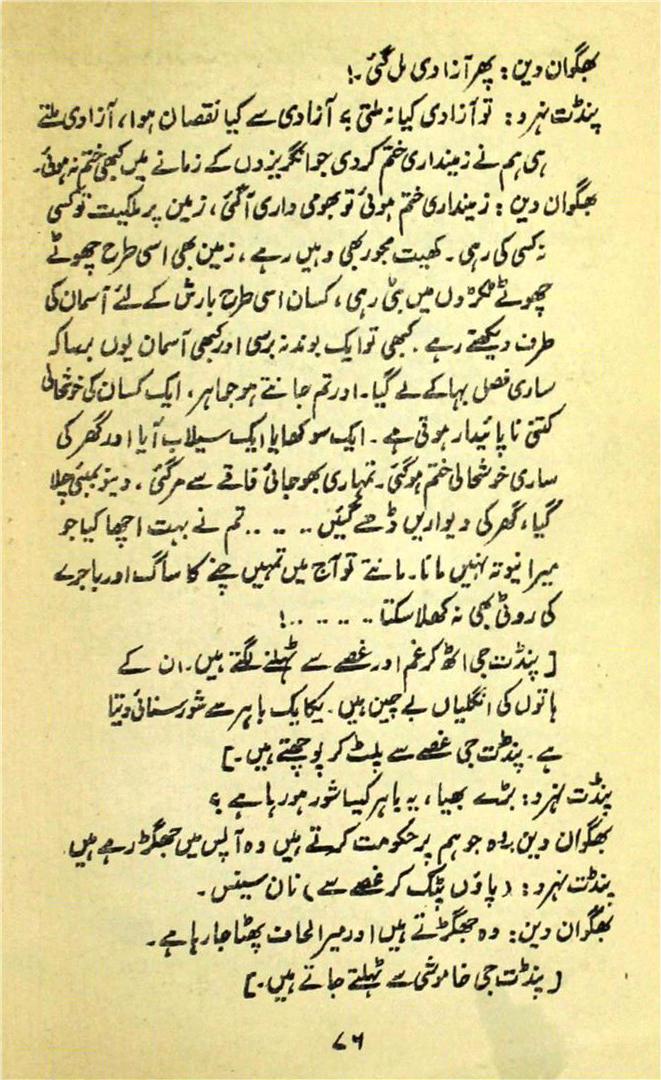 بھگوان دین: پھر آزادی مل گئی۔!
پنڈت نہرو: تو آزادی کیا نہ ملتی؟ آزادی سے کیا نقصان ہوا، آزادی ملتے
ہی ہم نے زمینداری ختم کردی جو انگریزوں کے زمانے میں کبھی ختم نہ ہوئی۔
بھگوان دین: زمینداری ختم ہوئی تو بھومی داری آگئی، زمین پر ملکیت تو کسی
نہ کسی کی رہی۔ کھیت مجور بھی وہیں رہے، زمین بھی اسی طرح چھوٹے
چھوٹے ٹکڑوں میں بٹی رہی، کسان اسی طرح بارش کے لئے آسمان کی
طرف دیکھتے رہے۔ کبھی تو ایک بوند نہ برسی اور کبھی آسمان یوں برسا کہ
ساری فصل بہا کے لے گیا۔ اور تم جانتے ہو جواہر، ایک کسان کی خوشحالی
کتنی ناپائیدار ہوتی ہے۔ ایک سوکھا یا ایک سیلاب آیا اور گھر کی
ساری خوشحالی ختم ہوگئی۔ تمہاری بھوجائی فاقے سے مرگئی، دینو بمبئی چلا
گیا، گھر کی دیواریں ڈھے گئیں ۔۔۔۔۔ تم نے بہت اچھا کیا جو
میرا نیوتہ نہیں مانا۔ مانتے تو آج میں تمہیں چنے کا ساگ اور باجرے
کی روٹی بھی نہ کھلا سکتا ۔۔۔۔۔۔!
[پنڈت جی اٹھ کر غم اور غصے سے ٹہلنے لگتے ہیں۔ ان کے
ہاتوں کی انگلیاں بے چین ہیں۔ یکایک باہر سے شور سنائی دیتا
ہے۔ پنڈت جی غصے سے پلٹ کر پوچھتے ہیں۔]
پنڈت نہرو: بڑے بھیا، یہ باہر کیسا شور ہو رہا ہے؟
بھگوان دین: وہ جو ہم پر حکومت کرتے ہیں وہ آپس میں جھگڑ رہے ہیں
پنڈت نہرو: (پاؤں پٹک کر غصے سے) نان سینس۔
بھگوان دین: وہ جھگڑتے ہیں اور میرا لحاف پھٹا جا رہا ہے۔
[پنڈت جی خاموشی سے ٹہلتے جاتے ہیں۔]
۷۶